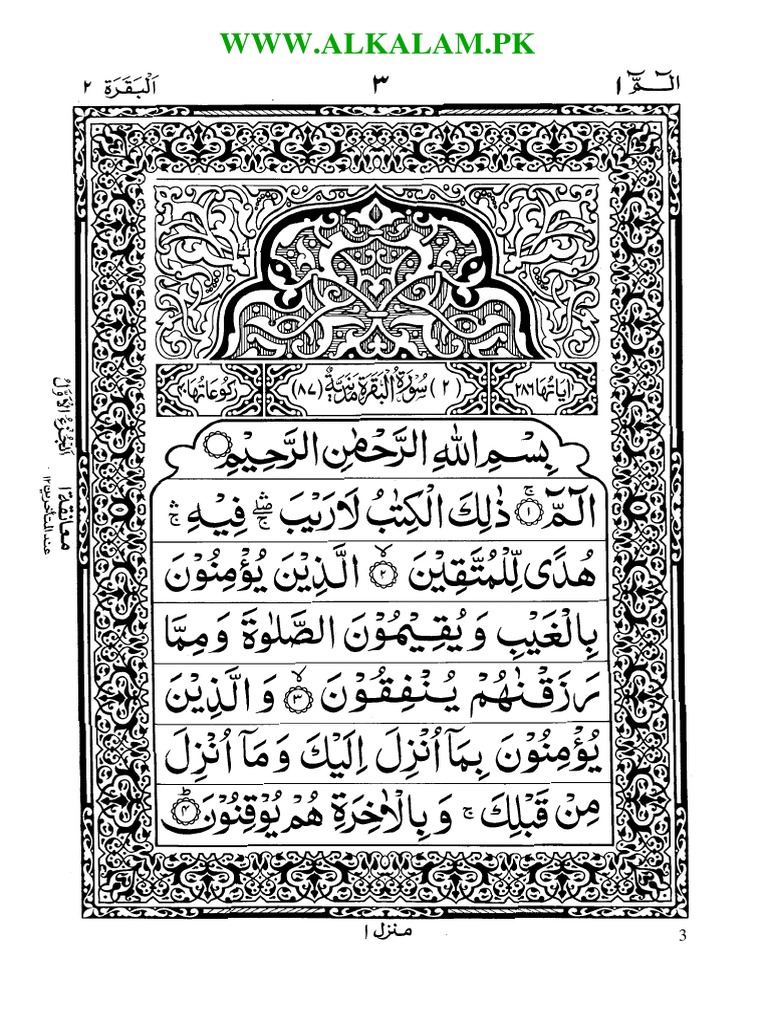 WWW.ALKALAM.PK
الٓمّٓ ١
٣
اَلْبَقَرَة ٢
اٰيَاتُهَا ٢٨٦
(٢) سُوْرَةُ الْبَقَرَةِ مَدَنِيَّةٌ (٨٧)
رُكُوْعَاتُهَا ٤٠
بِسْمِ اللهِ الرَّحْمٰنِ الرَّحِيْمِ
الٓمّٓ ۚ ١ ذٰلِكَ الْكِتٰبُ لَا رَيْبَ ۛۖ فِيْهِ ۛۚ
هُدًى لِّلْمُتَّقِيْنَ ۙ ٢ الَّذِيْنَ يُؤْمِنُوْنَ
بِالْغَيْبِ وَيُقِيْمُوْنَ الصَّلٰوةَ وَمِمَّا
رَزَقْنٰهُمْ يُنْفِقُوْنَ ۙ ٣ وَالَّذِيْنَ
يُؤْمِنُوْنَ بِمَاۤ اُنْزِلَ اِلَيْكَ وَمَاۤ اُنْزِلَ
مِنْ قَبْلِكَ ۚ وَبِالْاٰخِرَةِ هُمْ يُوْقِنُوْنَ ؕ ٤
اَلْجُزْءُ الْاَوَّلُ
معانقة ١
عند المتأخرين ١٢
منزل ١
3